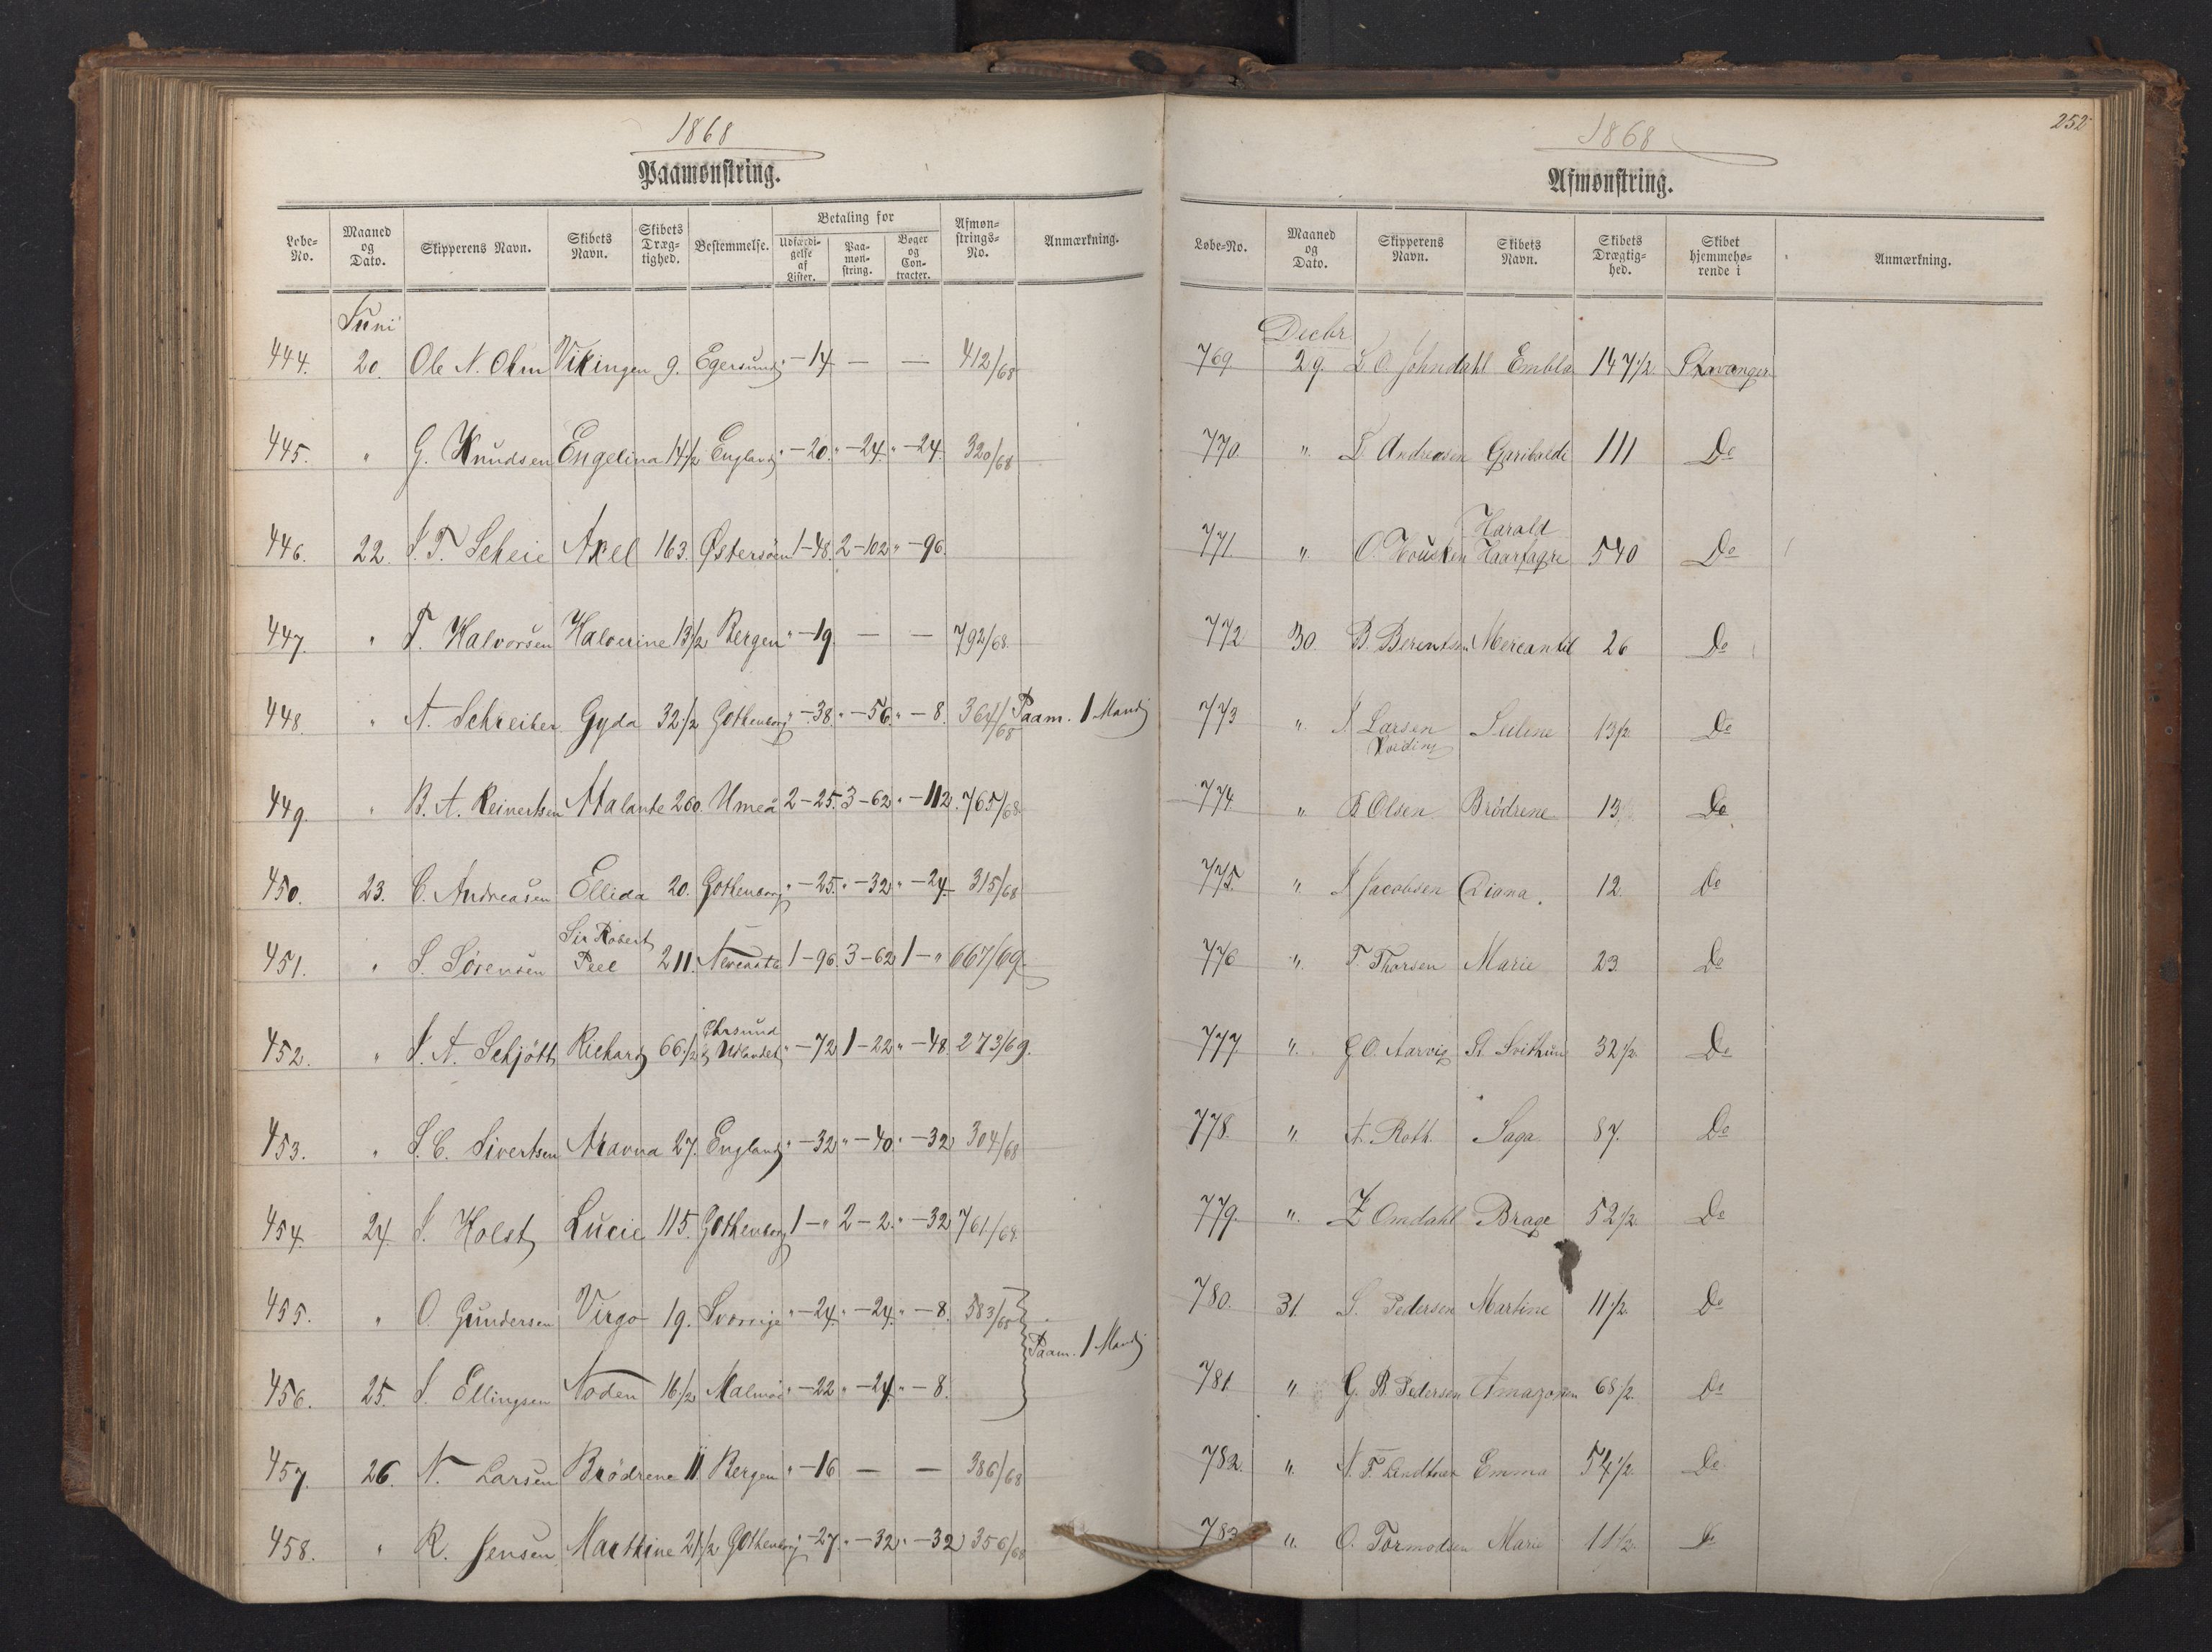 1868
Paamønstring.
Løbe-No. | Maaned og Dato. | Skipperens Navn. | Skibets Navn. | Skibets Dræg-tighed. | Bestemmelse. | Betaling for Udfærdi-gelse af Lister. | Paa-møn-string. | Bøger og Con-tracter. | Afmøn-strings-No. | Anmærkning.
Juni
444. 20. Ole N. Ohm Vikingen 9. Egersund " - 14 — — 412/68
445. " G. Knudsen Engelina 14 1/2 England " - 20. " - 24. " - 24. 320/68
446. 22. S. T. Scheie Axel 163. Østersøen 1 - 48. 2 - 102 " - 96.
447. " T. Halvorsen Halvorine 13 1/2 Bergen " - 19. — — 792/68.
448. " A. Schreiber Gyda 32 1/2 Gothenborg " - 38. " - 56 " - 8. 364/68 Paam. 1 Mand
449. " B. A. Reinertsen Atalante 260. Umeå 2 - 25. 3 - 62 " - 112. 765/68.
450. 23. C. Andreasen Ellida 20. Gothenborg " - 25. " - 32 " - 24. 315/68
Sir Robert
451. " S. Sørensen Peel 211. 1 - 96. 3 - 62 1 - " 667/69.
452. " S. A. Schjøtt Richard 66 1/2 & Udlandet " - 72 1 - 22 " - 48. 273/69.
453. " S. C. Sivertsen 27. England " - 32 " - 40. " - 32 304/68
454. 24. S. Holst Lucie 115. Gothenborg 1 - " 2 - 2. " - 32 761/68.
455. " O. Gundersen Virgo 19. Sverrige " - 24. " - 24. " - 8. 583/68
Paam. 1 Mand
456. 25. S. Ellingsen Noden 16 1/2 Malmøe " - 22 " - 24. " - 8.
457. 26. N. Larsen Brødrene 11 Bergen " - 16 — — 386/68
458. " R. Jensen Marthine 21 1/2 Gothenborg " - 27. " - 32 " - 32 356/68
252
1868
Afmønstring.
Løbe-No. | Maaned og Dato. | Skipperens Navn. | Skibets Navn. | Skibets Drægtig-hed. | Skibet hjemmehø-rende i | Anmærkning.
Decbr
769. 29. L. O. Johndahl Embla 147 1/2 Stavanger
770. " L. Andreasen Garibaldi 111 Do
Harald
771. " O. Housken Haarfagre 540 Do
772 30. B. Berentsen Mercantil 26 Do
773 " Larsen Seilene 13 1/2 Do
774. " B Olsen Brødrene 13 Do
775. " Jacobsen Diana. 12. Do
776 " T. Thorsen Marie 23. Do
777 " G. O. Aarvig St. Svithun 32 1/2 Do
778. " A. Roth. Saga. 87. Do
779. " Z Omdahl Brage 52 1/2 Do
780. 31. S. Pedersen Martine 11 1/2 Do
781. " G. B. Pedersen Amazonen 68 1/2 Do
782. " N. T. Lindtner Emma 54 1/2 Do
783 " O. Tormodsen Marie 11 1/2 Do